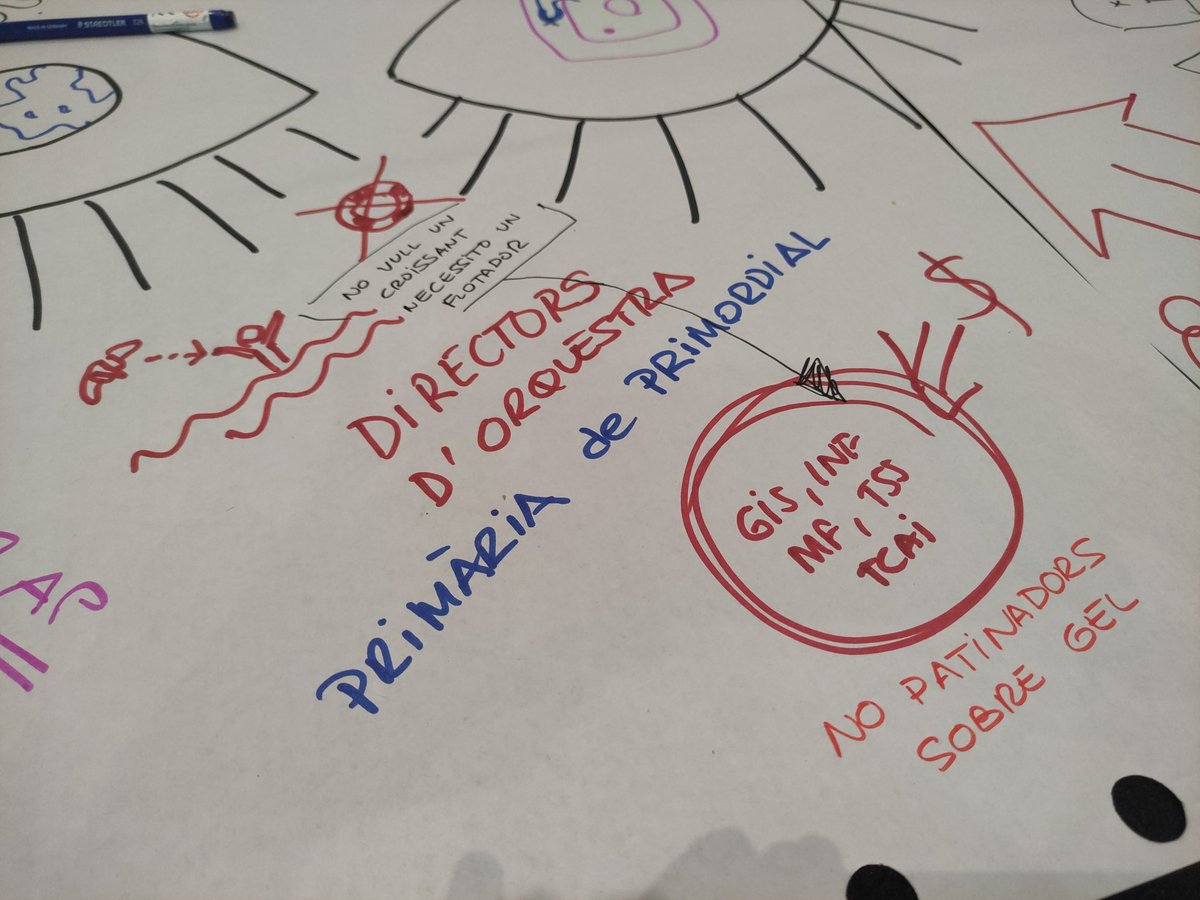 MADE IN GERMANY STAEDTLER
NO VULL UN
CROISSANT
NECESSITO UN
FLOTADOR
DiRECTORS
D'ORQUESTRA
PRiMÀRiA de PRiMORDiAL
$
GiS, INF
MF, TSS
TCAi
NO PATiNADORS
SOBRE GEL